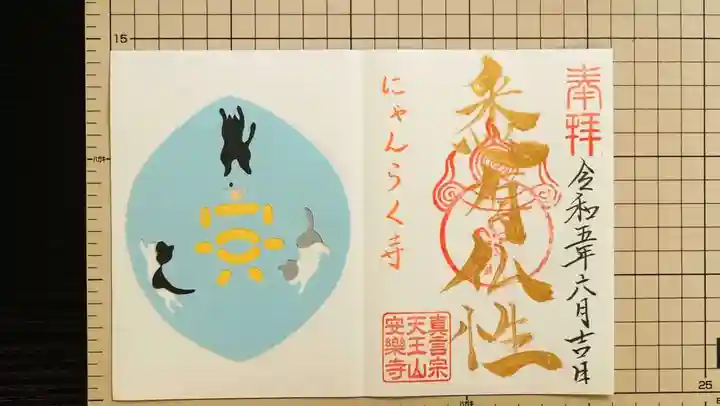 奉拝
令和五年六月吉日
悉有仏性
にゃんらく寺
真言宗
天王山
安樂寺
15
25
ハガキ
ハガキ